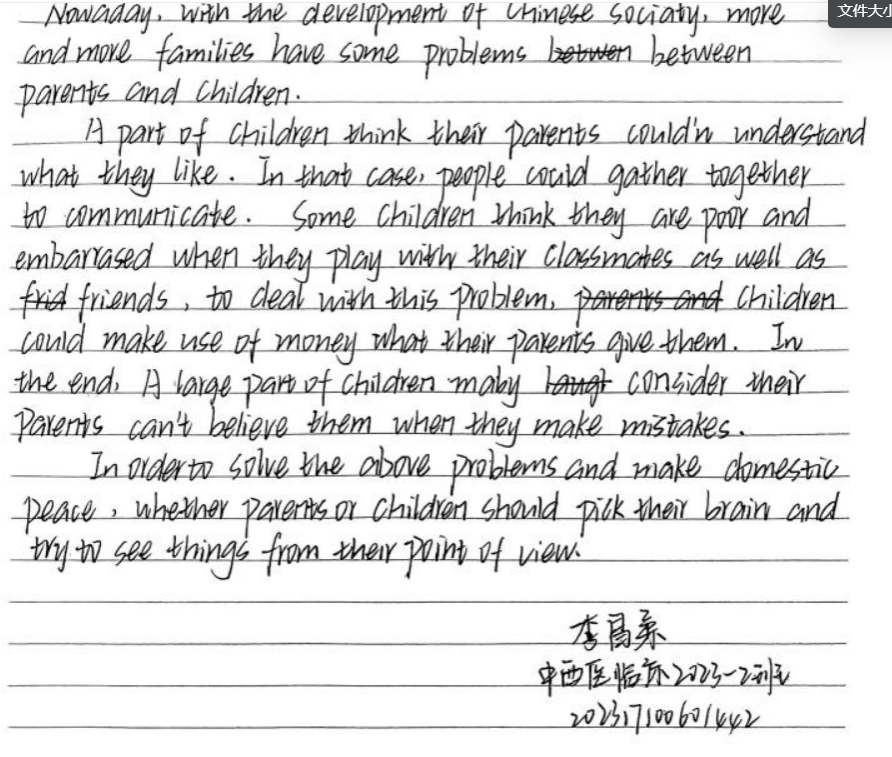 文件大小
Nowaday, with the development of Chinese sociaty, more
and more families have some problems betwen between
parents and children.
A part of children think their parents could'n understand
what they like. In that case, people could gather together
to communicate. Some children think they are poor and
embarrased when they play with their classmates as well as
frid friends, to deal with this problem, parents and children
could make use of money what their parents give them. In
the end, A large part of children maby consider their
Parents can't believe them when they make mistakes.
In order to solve the above problems and make domestic
peace, whether parents or children should pick their brain and
try to see things from their point of view.
李昌柔
中西医临床2023-2班
202317100601442